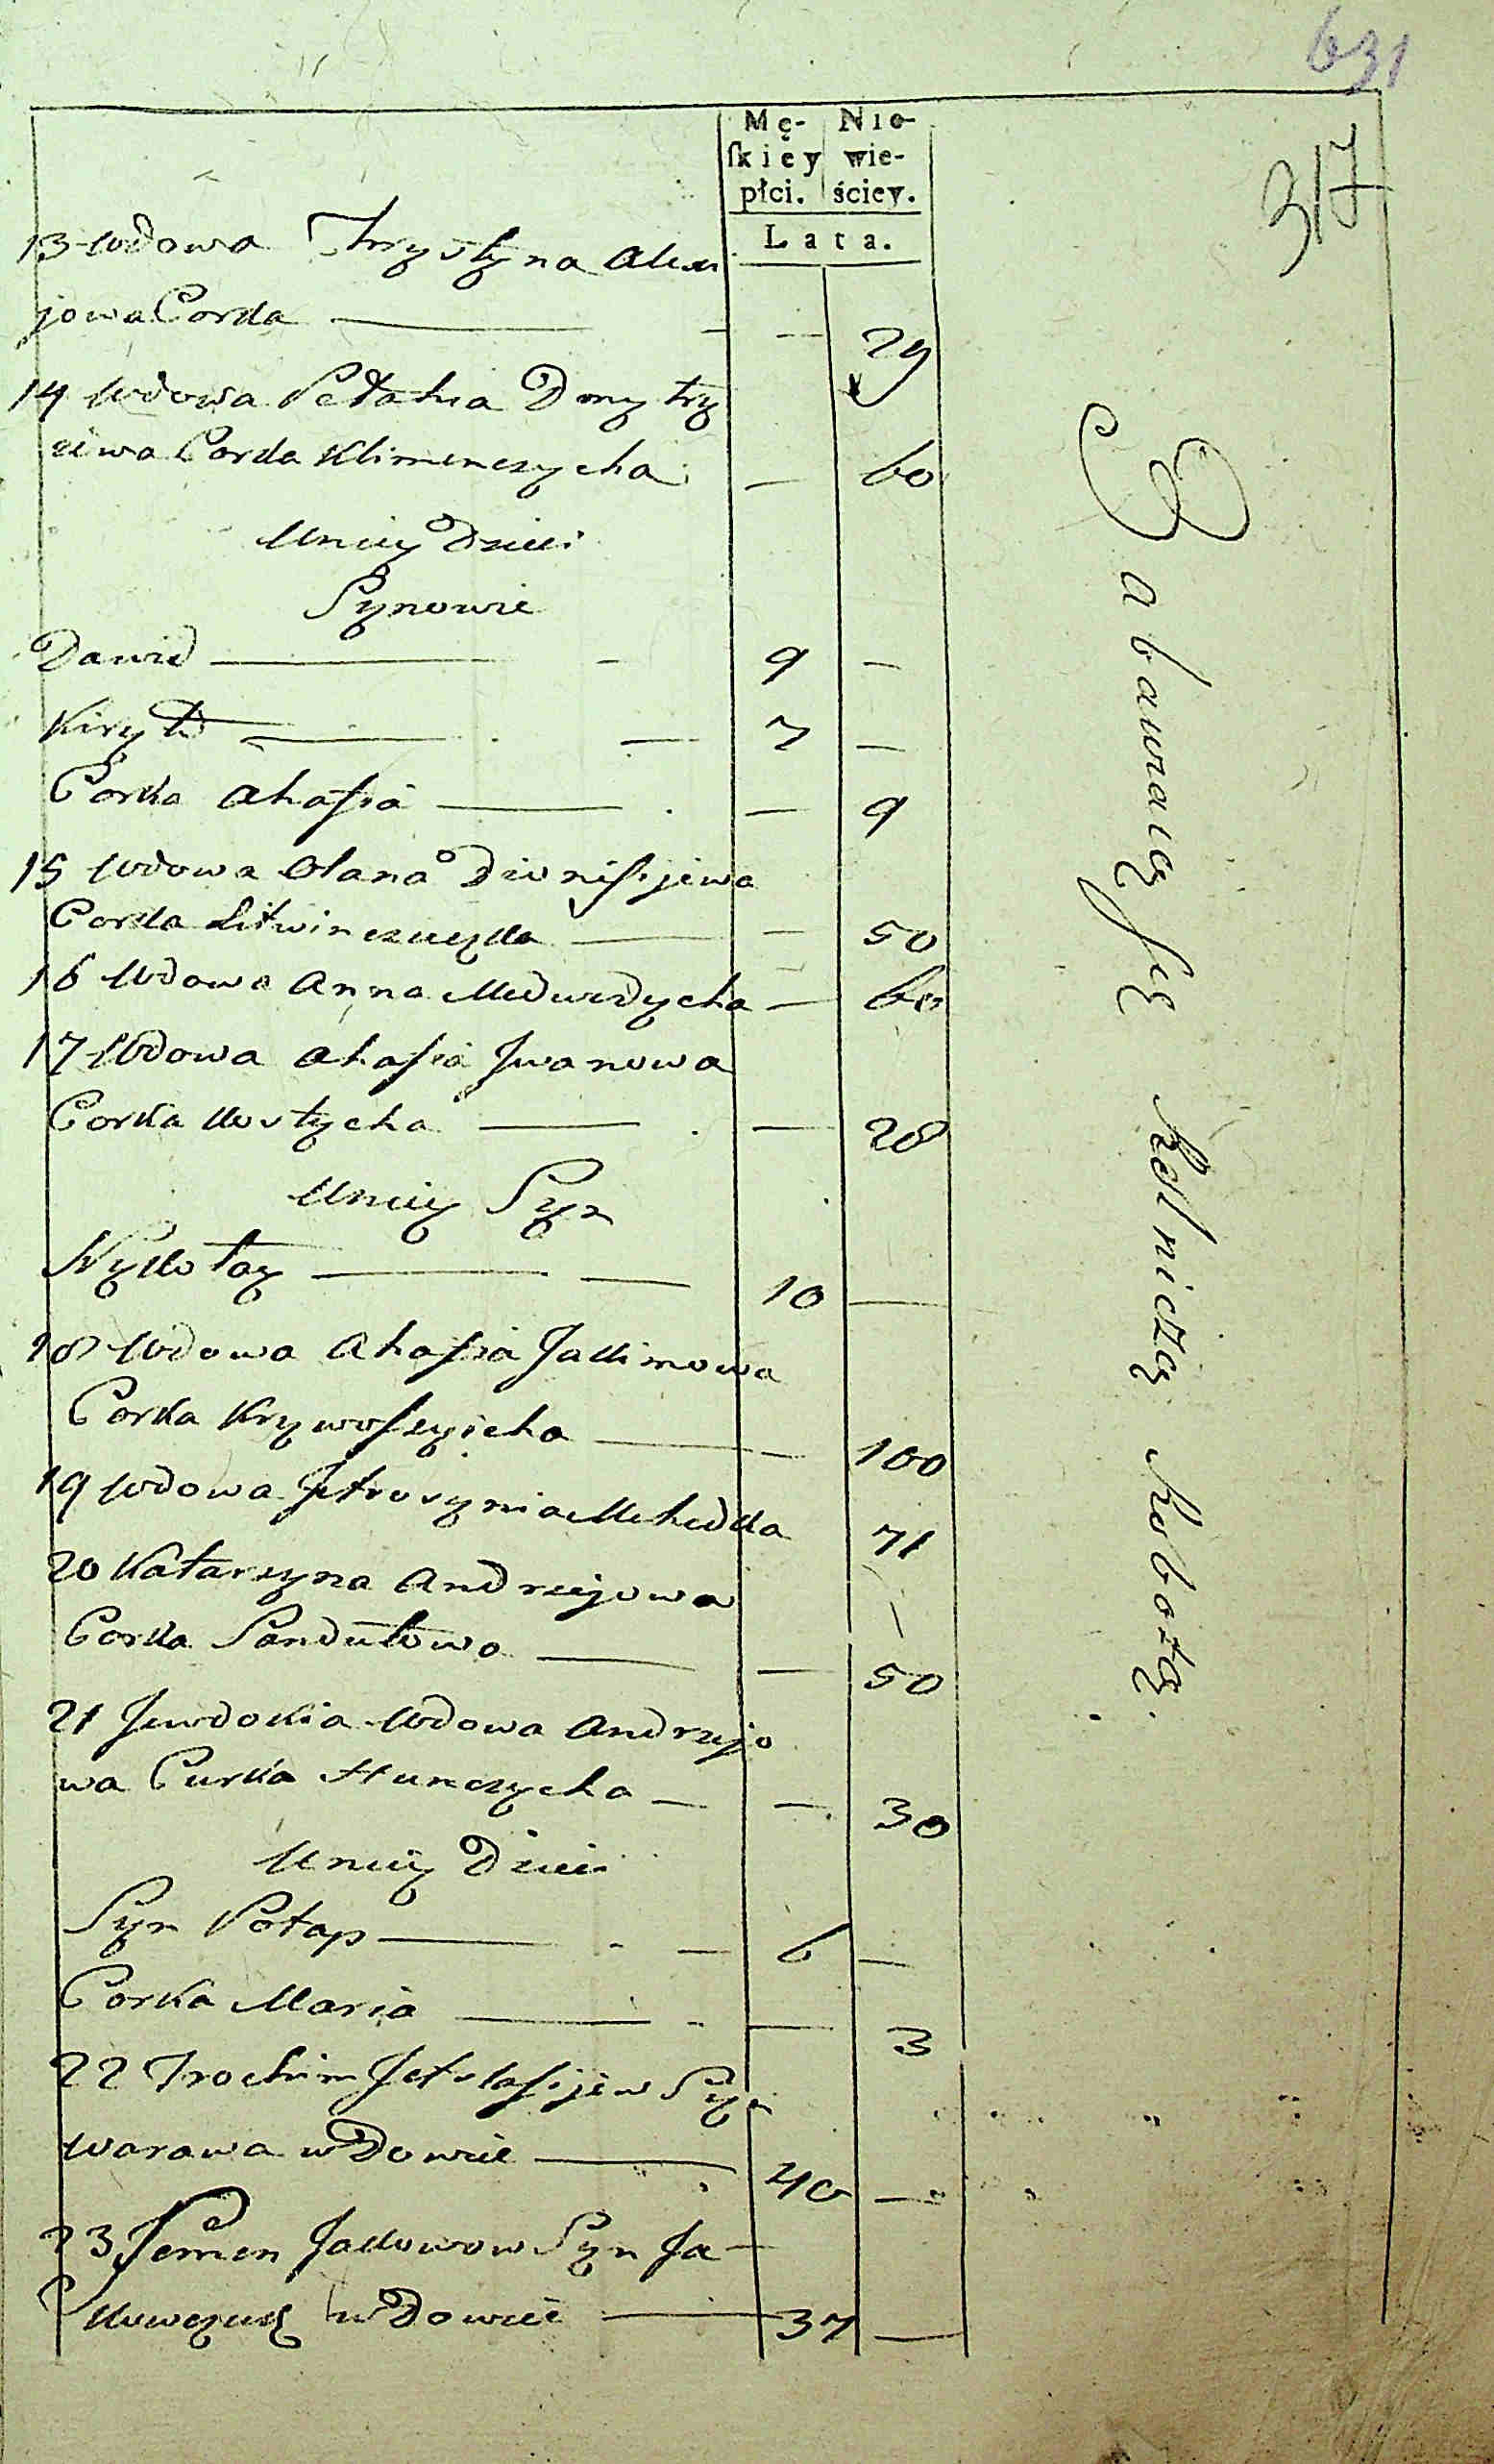 631
317
Mę- Nie-
ſkiey wie-
płci. ściey.
Lata.
13 Wdowa Krystyna Alexi
jowa Corka — — 29
14 Wdowa Pełahia Dmytry
eiwa Corka Klimenczycha — 60
Uniey Dzieci
Synowie
Dawid — 9 —
Kiryło — 7 —
Corka Ahafia — — 9
15 Wdowa Olana Dionisijewa
Corka Litwinczuczka — — 50
16 Wdowa Anna Medwedycha — 60
17 Wdowa Ahafia Jwanowa
Corka Kostycha — — 28
Uniey Syn
Mykołay — — 10 —
18 Wdowa Ahafia Jakimowa
Corka Krywoszyicha — — 100
19 Wdowa Jefrosynia Mehedka 71
20 Katarzyna Andrzejowa
Corka Sandułowa — — 50
21 Jewdokia Wdowa Andrzejo
wa Curka Hunczycha — — 30
Uniey Dzieci
Syn Potap — — 6 —
Corka Maria — — 3
22 Trochim Syn
Warawa wdowiec — 40 —
23 Semen Jakowow Syn Ja-
kowczuk wdowiec — 37 —
Zabawiaią się Rolniczą Robotą.